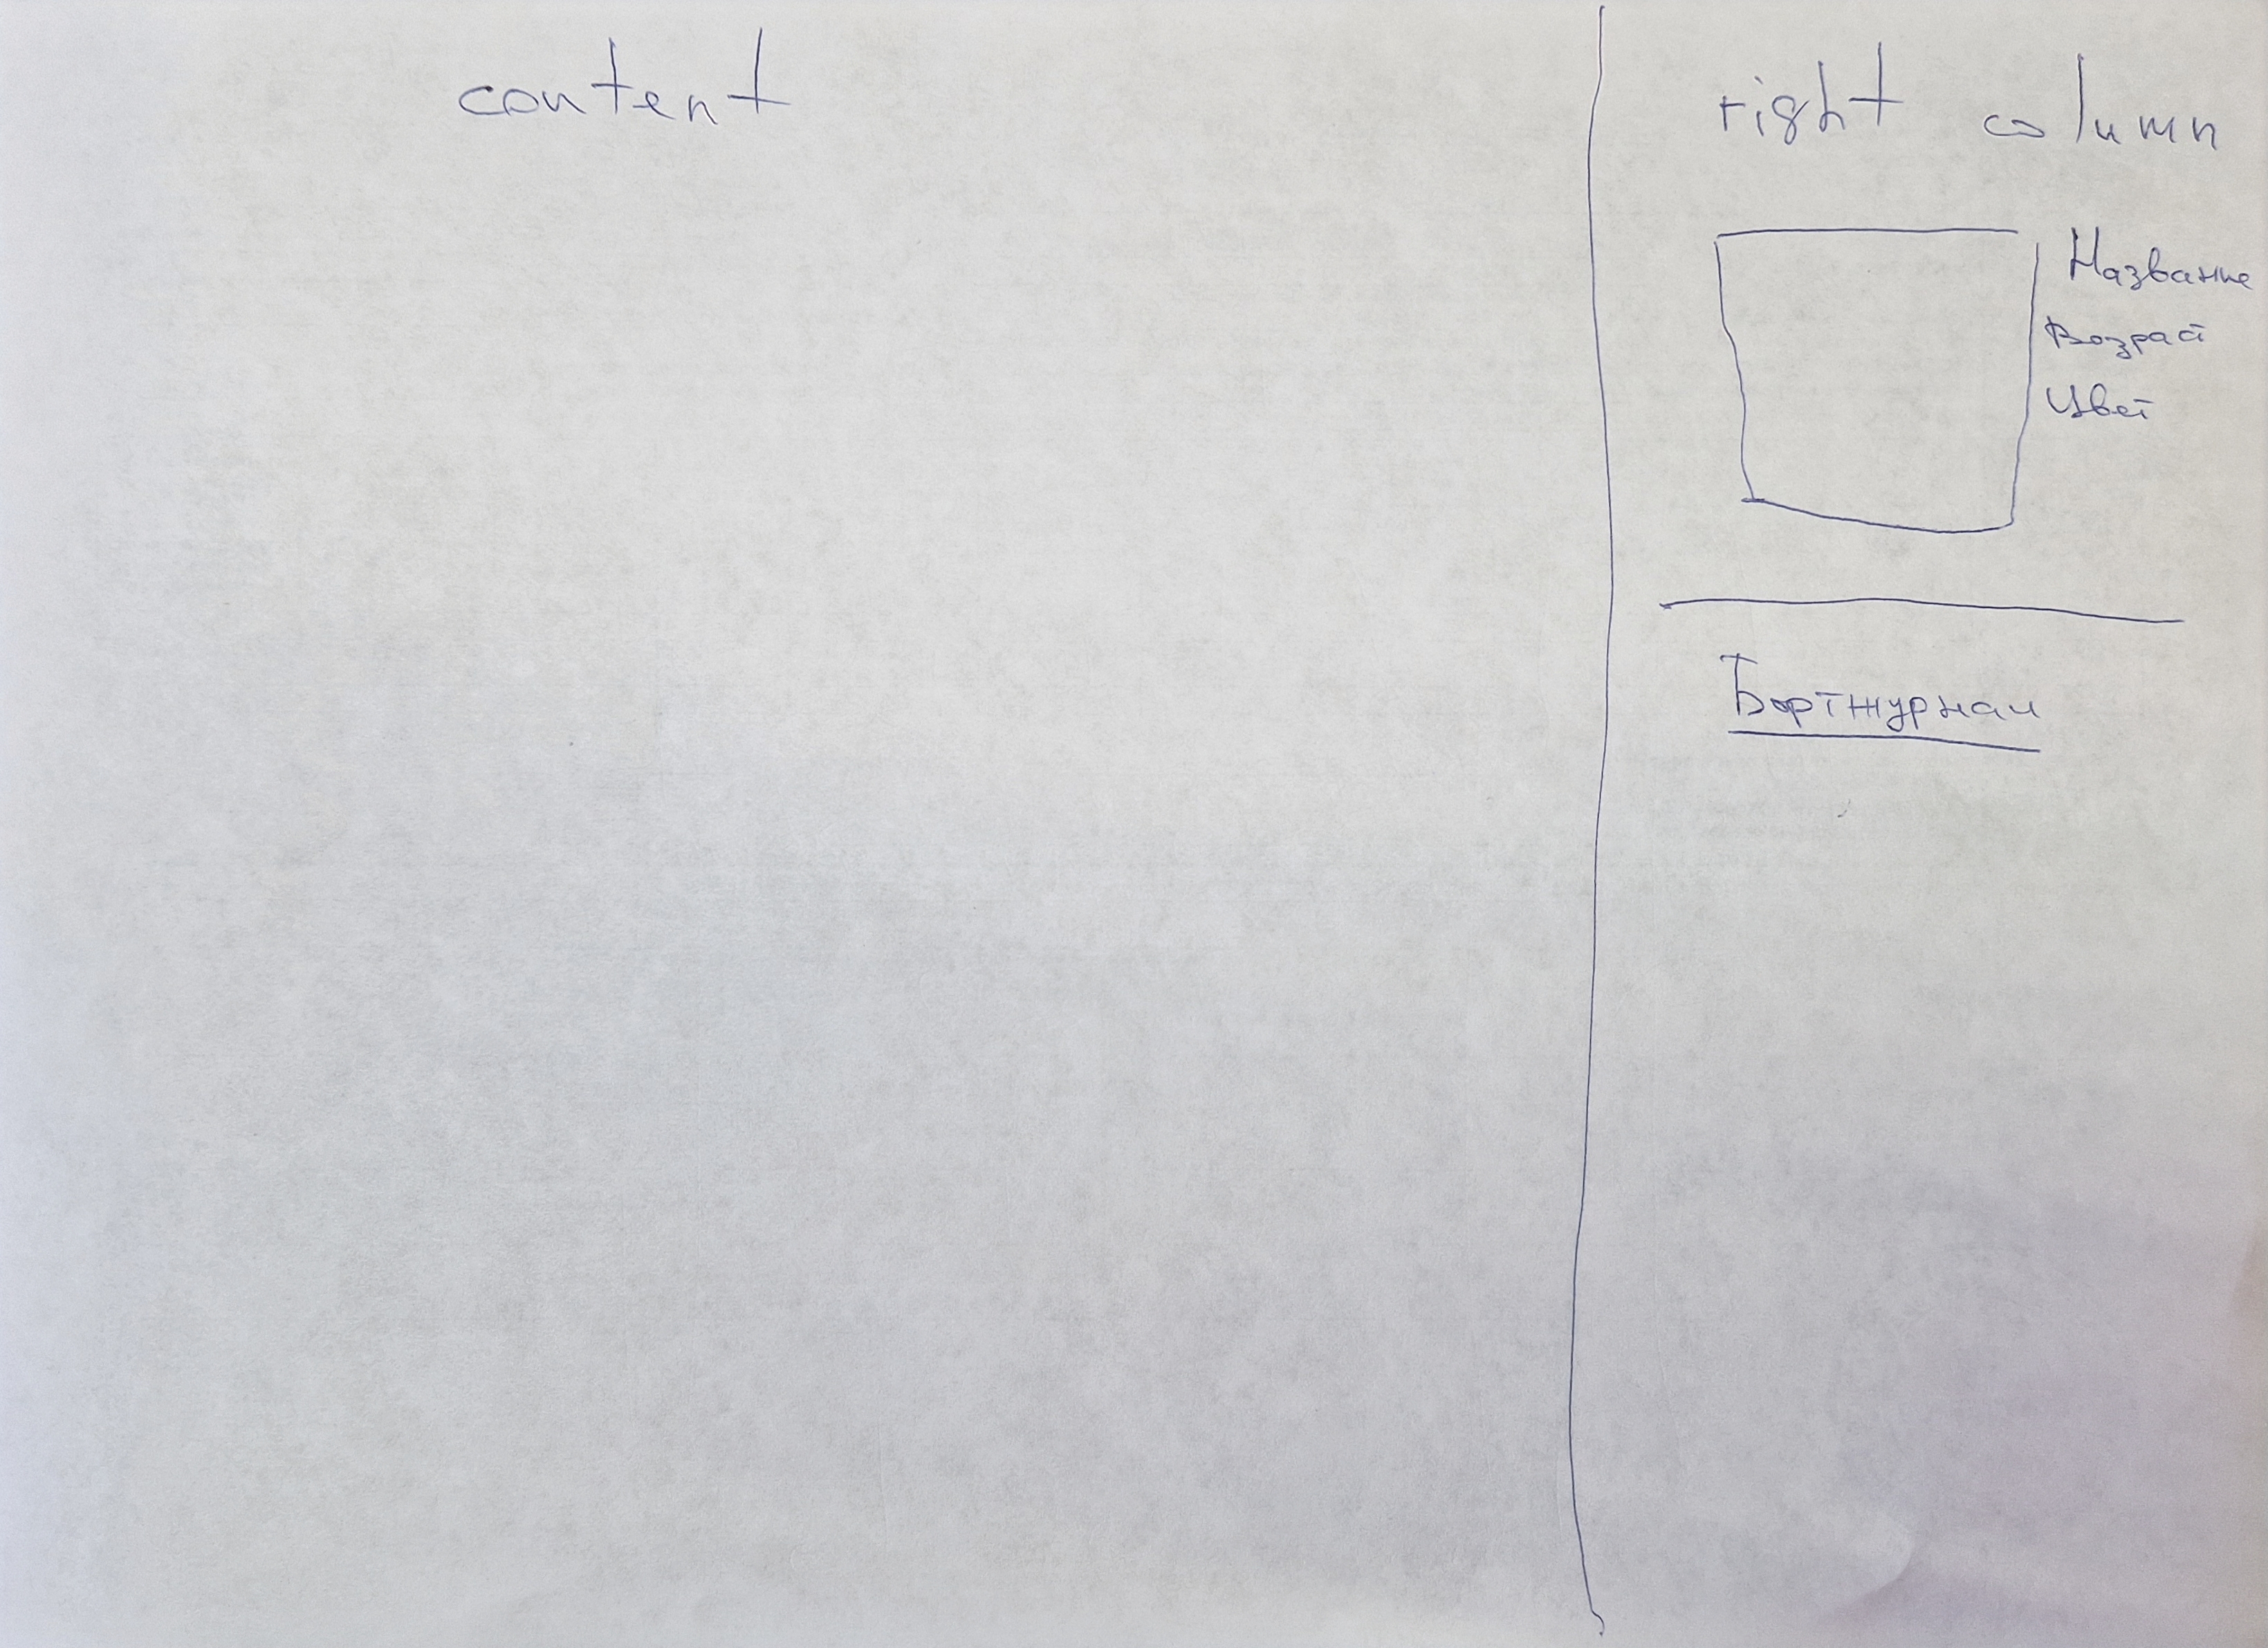 content
right column
Название
Возраст
Цвет
Бортжурнал